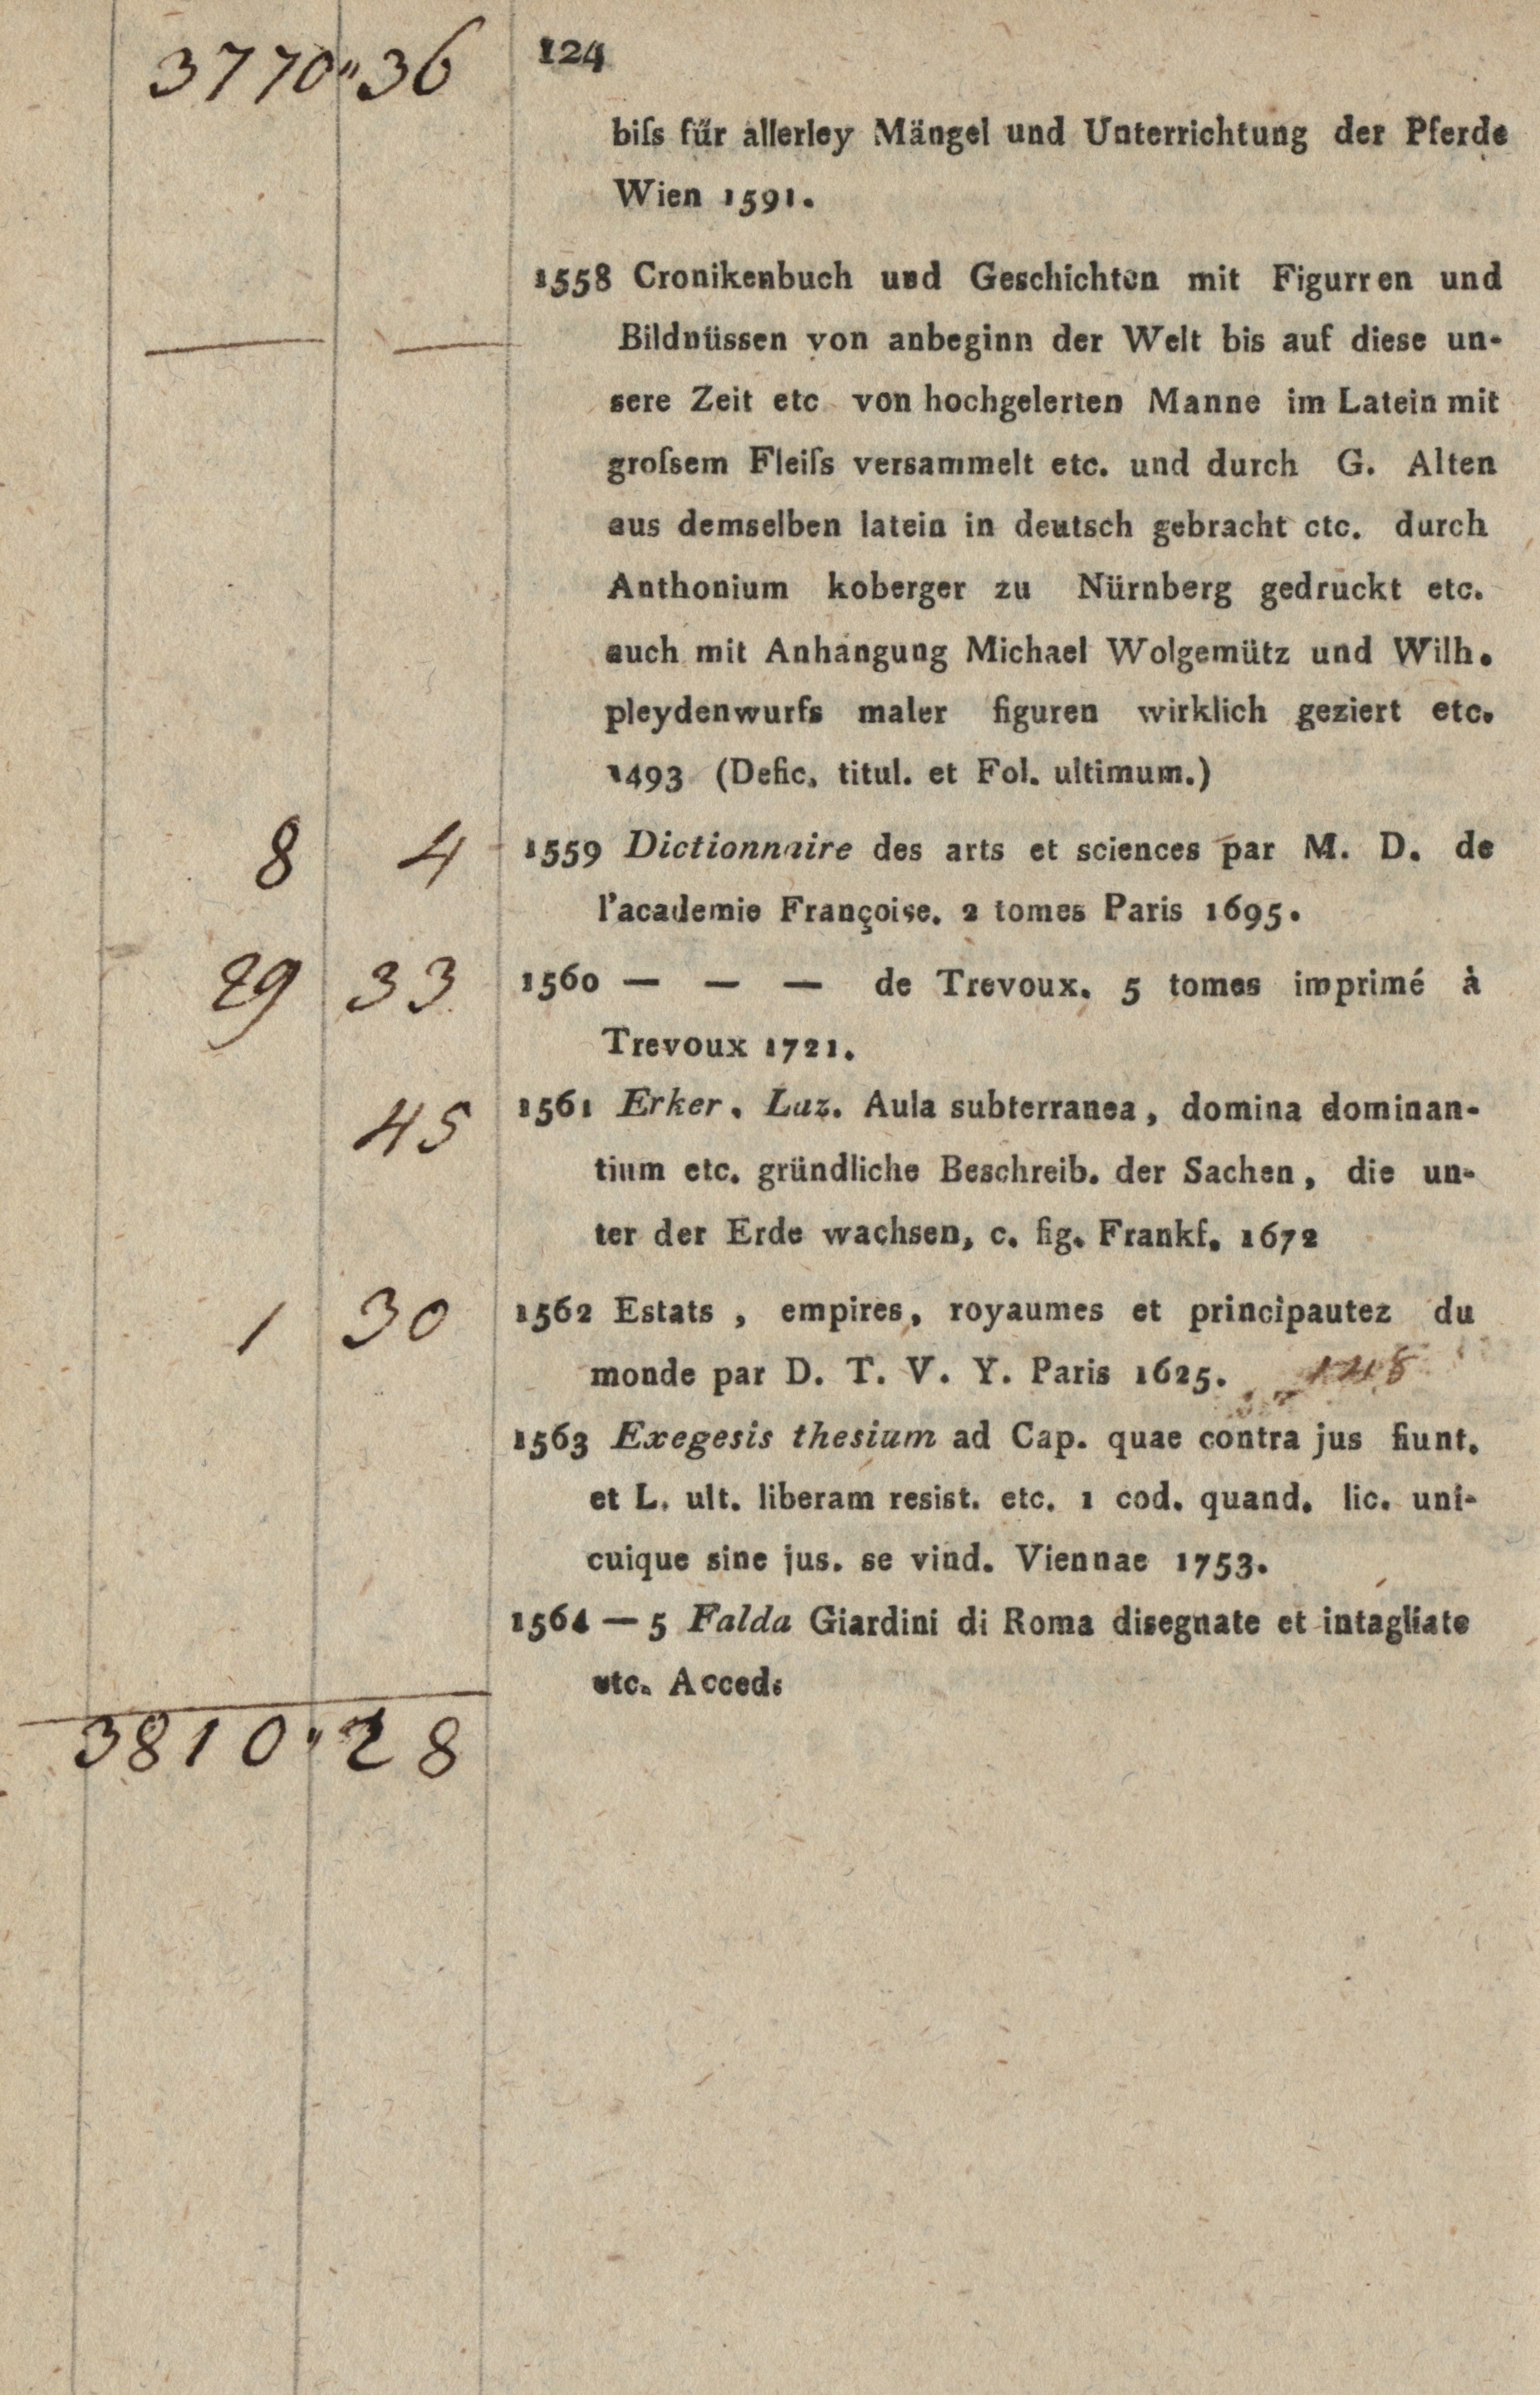 3770 " 36
124
biſs für allerley Mängel und Unterrichtung der Pferde
Wien 1591.
1558 Cronikenbuch und Geschichten mit Figurren und
— — Bildnüssen von anbeginn der Welt bis auf diese un-
sere Zeit etc von hochgelerten Manne im Latein mit
groſsem Fleiſs versammelt etc. und durch G. Alten
aus demselben latein in deutsch gebracht etc. durch
Anthonium koberger zu Nürnberg gedruckt etc.
auch mit Anhangung Michael Wolgemütz und Wilh.
pleydenwurfs maler figuren wirklich geziert etc.
1493 (Defic. titul. et Fol. ultimum.)
8 4 1559 Dictionnaire des arts et sciences par M. D. de
l'academie Françoise. 2 tomes Paris 1695.
29 33 1560 — — — de Trevoux. 5 tomes imprimé à
Trevoux 1721.
45 1561 Erker. Laz. Aula subterranea, domina dominan-
tium etc. gründliche Beschreib. der Sachen, die un-
ter der Erde wachsen, c. fig. Frankf. 1672
1 30 1562 Estats, empires, royaumes et principautez du
monde par D. T. V. Y. Paris 1625.
1563 Exegesis thesium ad Cap. quae contra jus fiunt.
et L. ult. liberam resist. etc. 1 cod. quand. lic. uni-
cuique sine jus. se vind. Viennae 1753.
1564 — 5 Falda Giardini di Roma disegnate et intagliate
etc. Acced:
3810 " 28